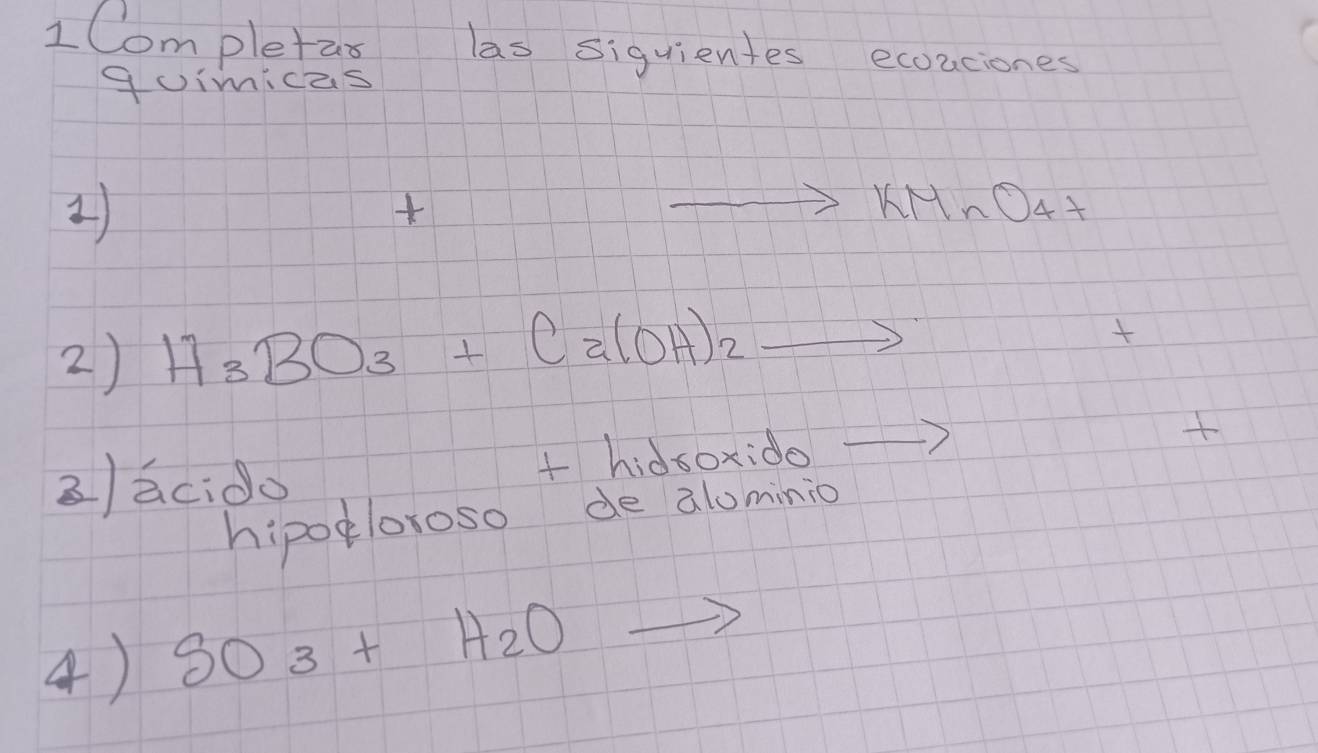 1 Completar las siguientes ecuaciones
químicas
1) + → KMnO4+
2) H3BO3 + Ca(OH)2 → +
3) ácido + hidroxido → +
hipocloroso de aluminio
4) SO3 + H2O →